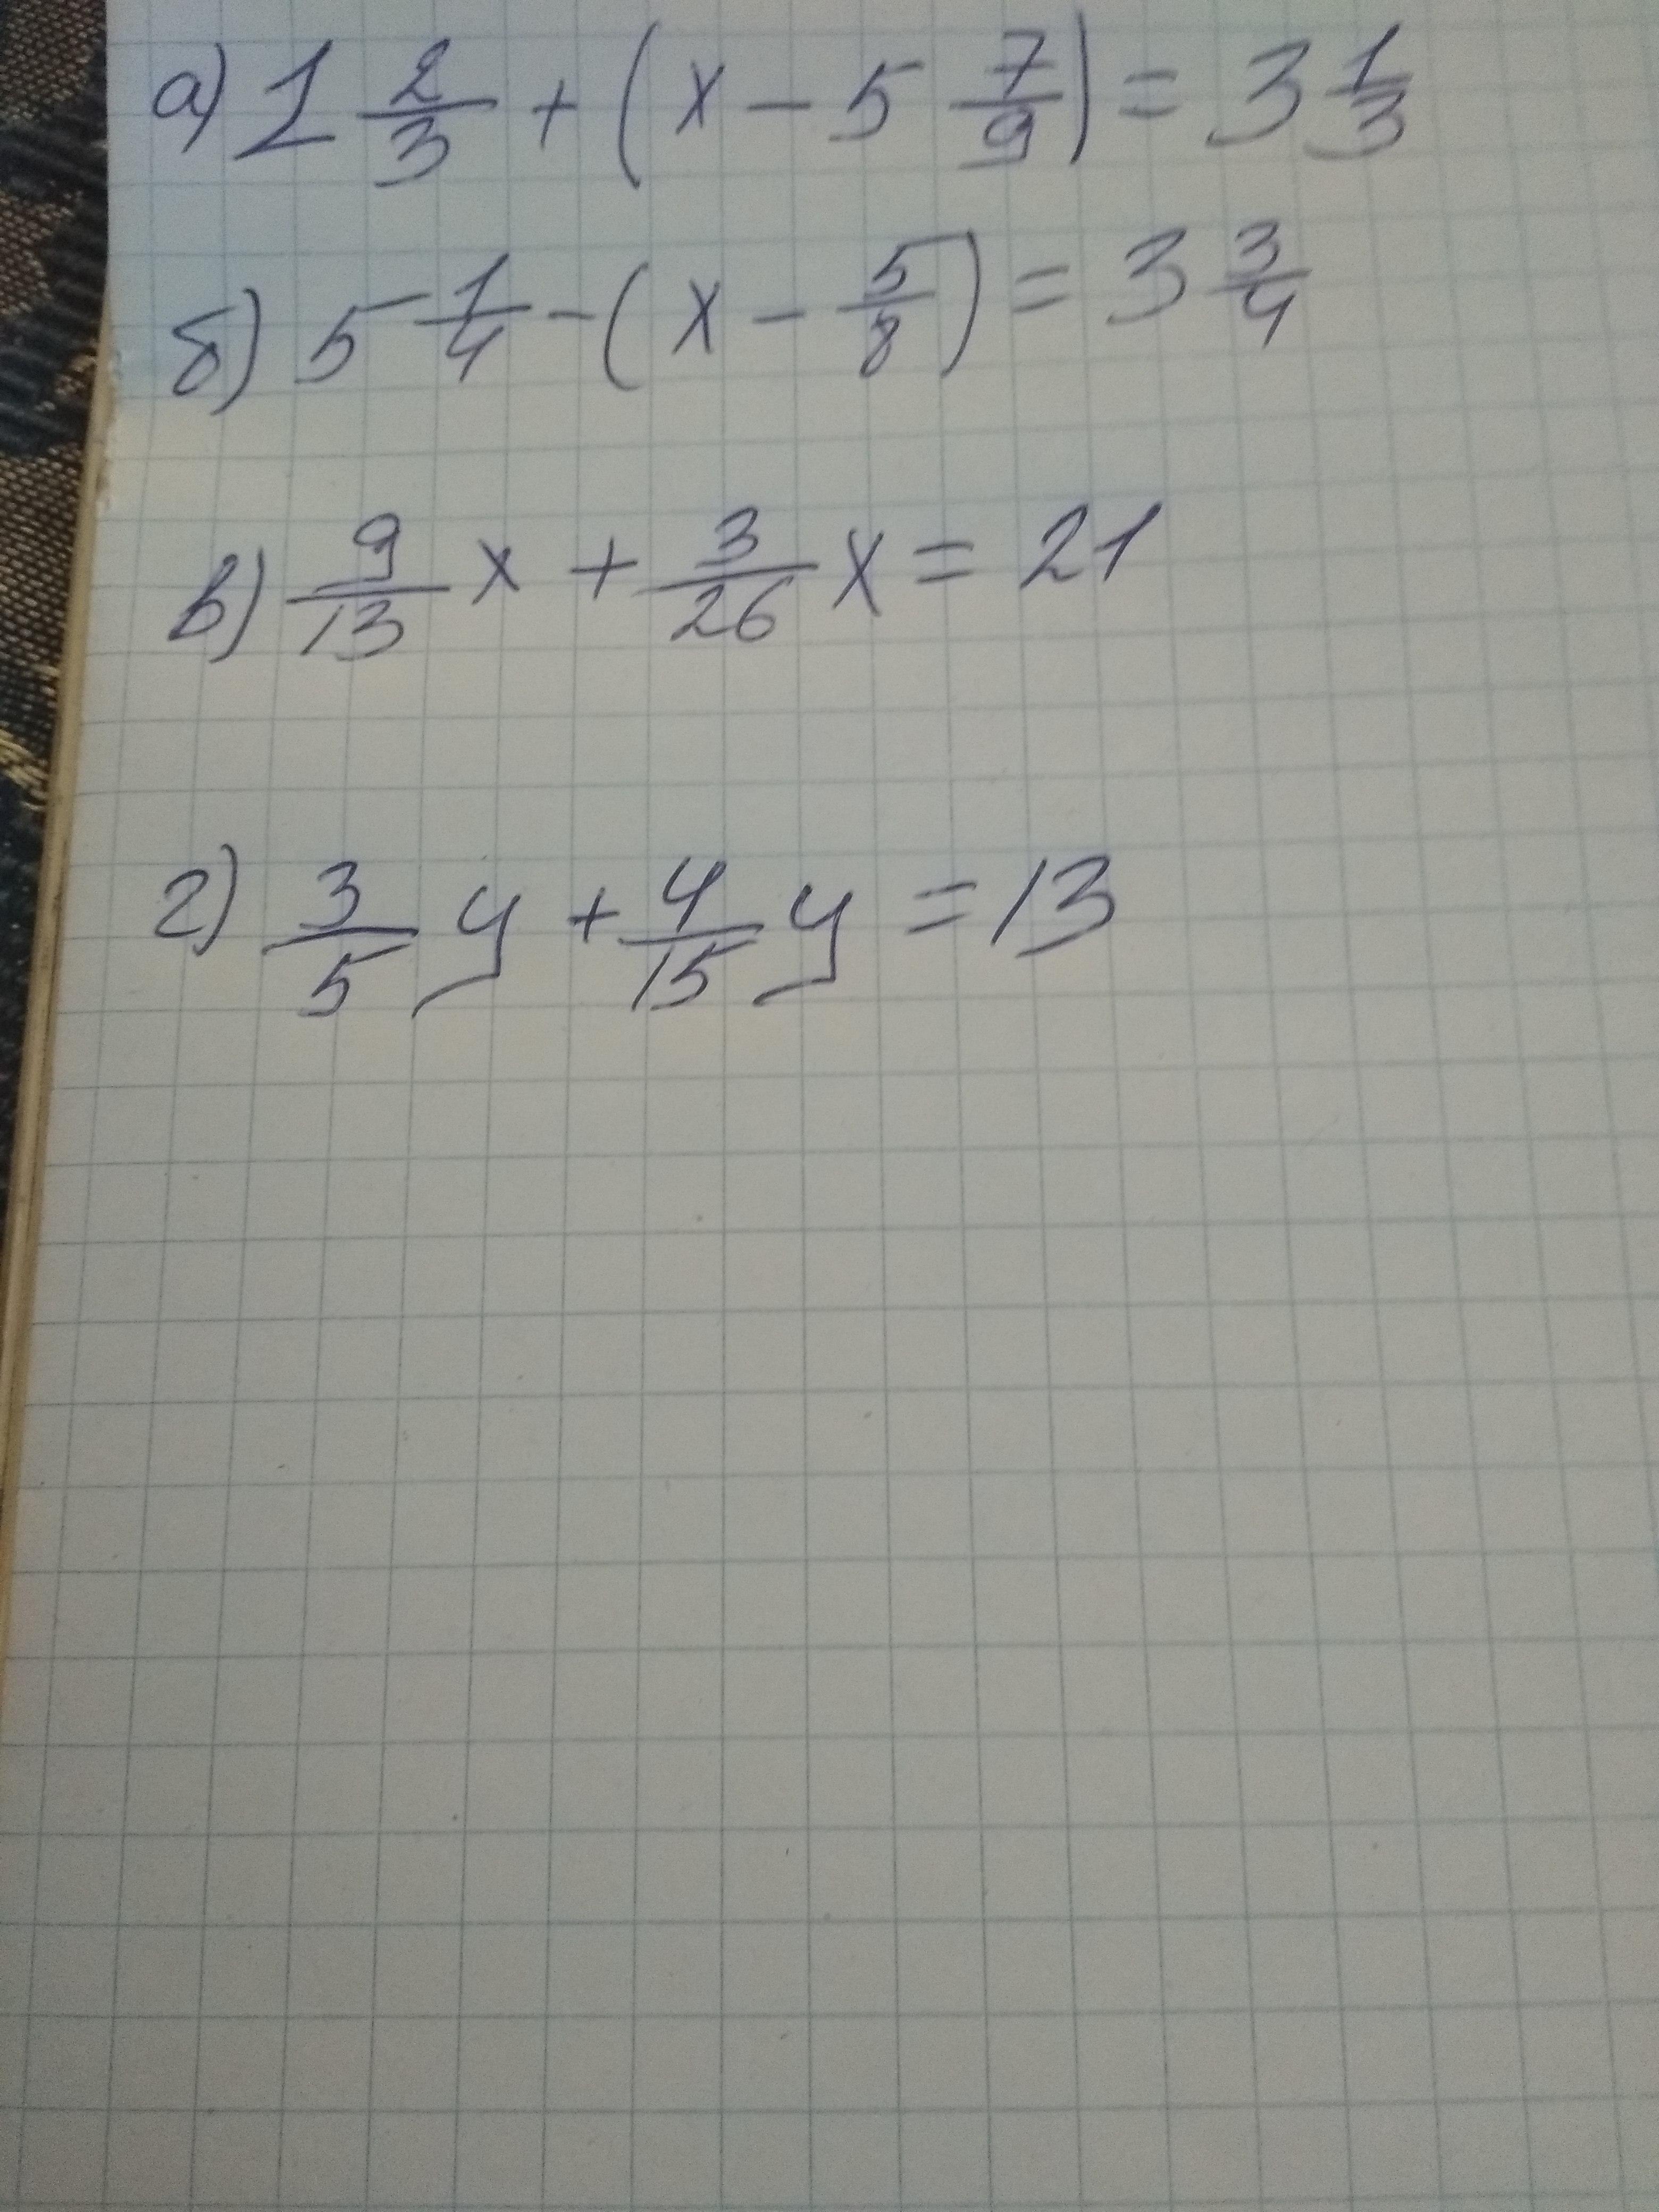 а) 1 2/3 + (x - 5 7/9) = 3 1/3
б) 5 1/4 - (x - 5/8) = 3 3/4
в) 9/13 x + 3/26 x = 21
г) 3/5 y + 4/15 y = 13